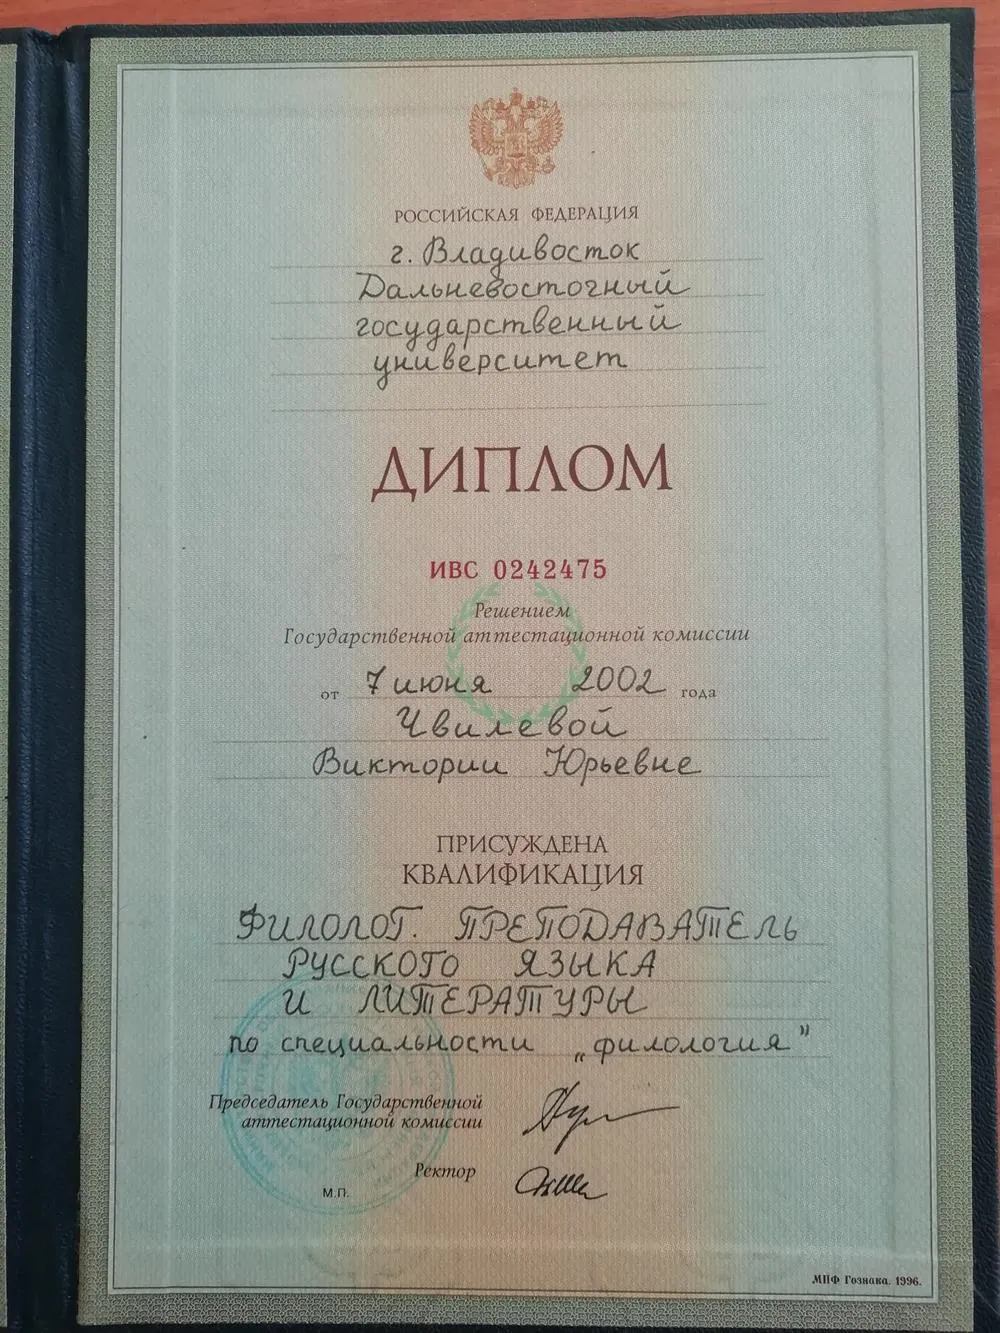 РОССИЙСКАЯ ФЕДЕРАЦИЯ
г. Владивосток
Дальневосточный
государственный
университет
ДИПЛОМ
ИВС 0242475
Решением
Государственной аттестационной комиссии
от 7 июня 2002 года
Чвилевой
Виктории Юрьевне
ПРИСУЖДЕНА
КВАЛИФИКАЦИЯ
ФИЛОЛОГ. ПРЕПОДАВАТЕЛЬ
РУССКОГО ЯЗЫКА
И ЛИТЕРАТУРЫ
по специальности „филология"
Председатель Государственной
аттестационной комиссии
Ректор
М.П.
МПФ Гознака. 1996.